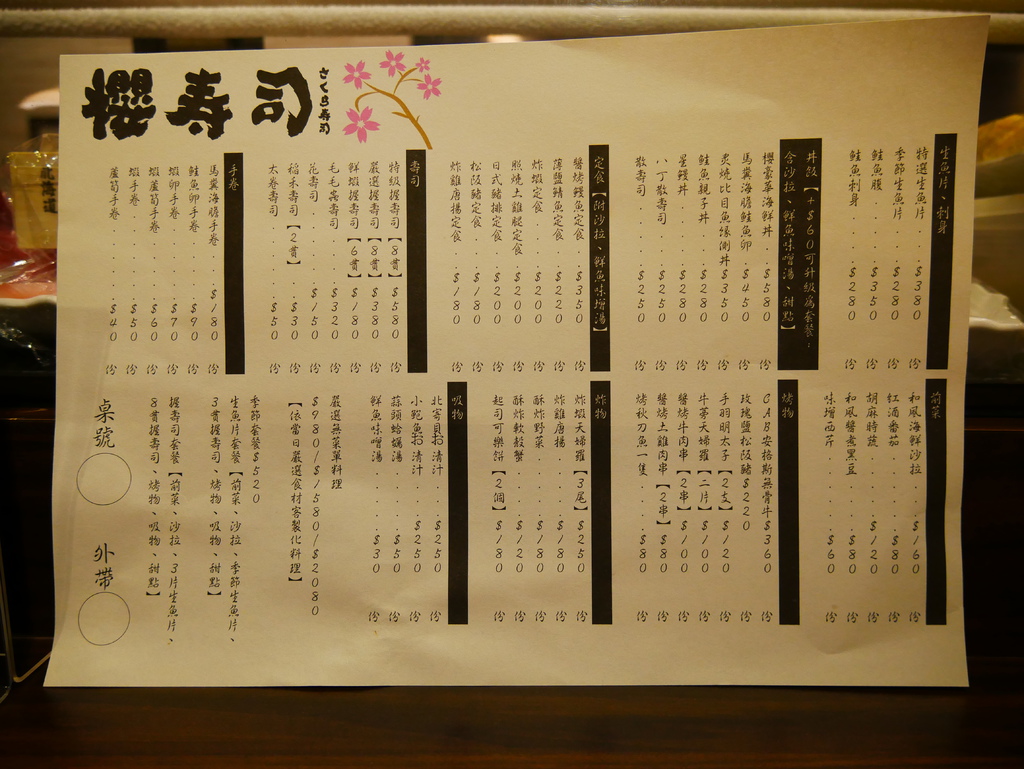 櫻壽司
さくら寿司
生魚片、刺身
特選生魚片....$380 份
季節生魚片....$280 份
鮭魚腹......$350 份
鮭魚刺身.....$280 份
丼飯【+$60可升級為套餐:
含沙拉、鮮魚味噌湯、甜點】
櫻豪華海鮮丼..$580 份
馬糞海膽鮭魚卵.$450 份
炙燒比目魚緣側丼$350 份
鮭魚親子丼...$280 份
星鰻丼.....$280 份
八丁散壽司...$250 份
散壽司.....$250 份
定食【附沙拉、鮮魚味增湯】
醬烤鰻魚定食..$350 份
薄鹽鯖魚定食..$220 份
炸蝦定食....$220 份
照燒土雞腿定食.$200 份
日式豬排定食..$200 份
松阪豬定食...$180 份
炸雞唐揚定食..$180 份
壽司
特級握壽司【8貫】$580 份
嚴選握壽司【8貫】$380 份
鮮蝦握壽司【6貫】$180 份
毛毛蟲壽司...$320 份
花壽司.....$150 份
稻禾壽司【2貫】.$30 份
太卷壽司.....$50 份
手卷
馬糞海膽手卷..$180 份
鮭魚卵手卷...$90 份
蝦卵手卷....$70 份
蝦蘆筍手卷...$60 份
蝦手卷.....$50 份
蘆筍手卷....$40 份
前菜
和風海鮮沙拉..$160 份
紅酒番茄....$80 份
胡麻時蔬....$120 份
和風醬煮黑豆..$80 份
味增西芹....$60 份
烤物
CAB安格斯無骨牛$360 份
玫瑰鹽松阪豬$220 份
手羽明太子【2支】$120 份
牛蒡天婦羅【二片】$100 份
醬烤牛肉串【2串】$100 份
醬烤土雞肉串【2串】$80 份
烤秋刀魚一隻...$80 份
炸物
炸蝦天婦羅【3尾】$250 份
炸雞唐揚....$180 份
酥炸野菜....$180 份
酥炸軟殼蟹...$120 份
起司可樂餅【2個】$180 份
吸物
北寄貝お清汁..$250 份
小鮑魚お清汁..$250 份
蒜頭蛤蠣湯...$50 份
鮮魚味噌湯...$30 份
嚴選無菜單料理
$980/$1580/$2080
【依當日嚴選食材客製化料理】
季節套餐$520
生魚片套餐【前菜、沙拉、季節生魚片、
3貫握壽司、烤物、吸物、甜點】
握壽司套餐【前菜、沙拉、3片生魚片、
8貫握壽司、烤物、吸物、甜點】
桌號
外帶
北海道